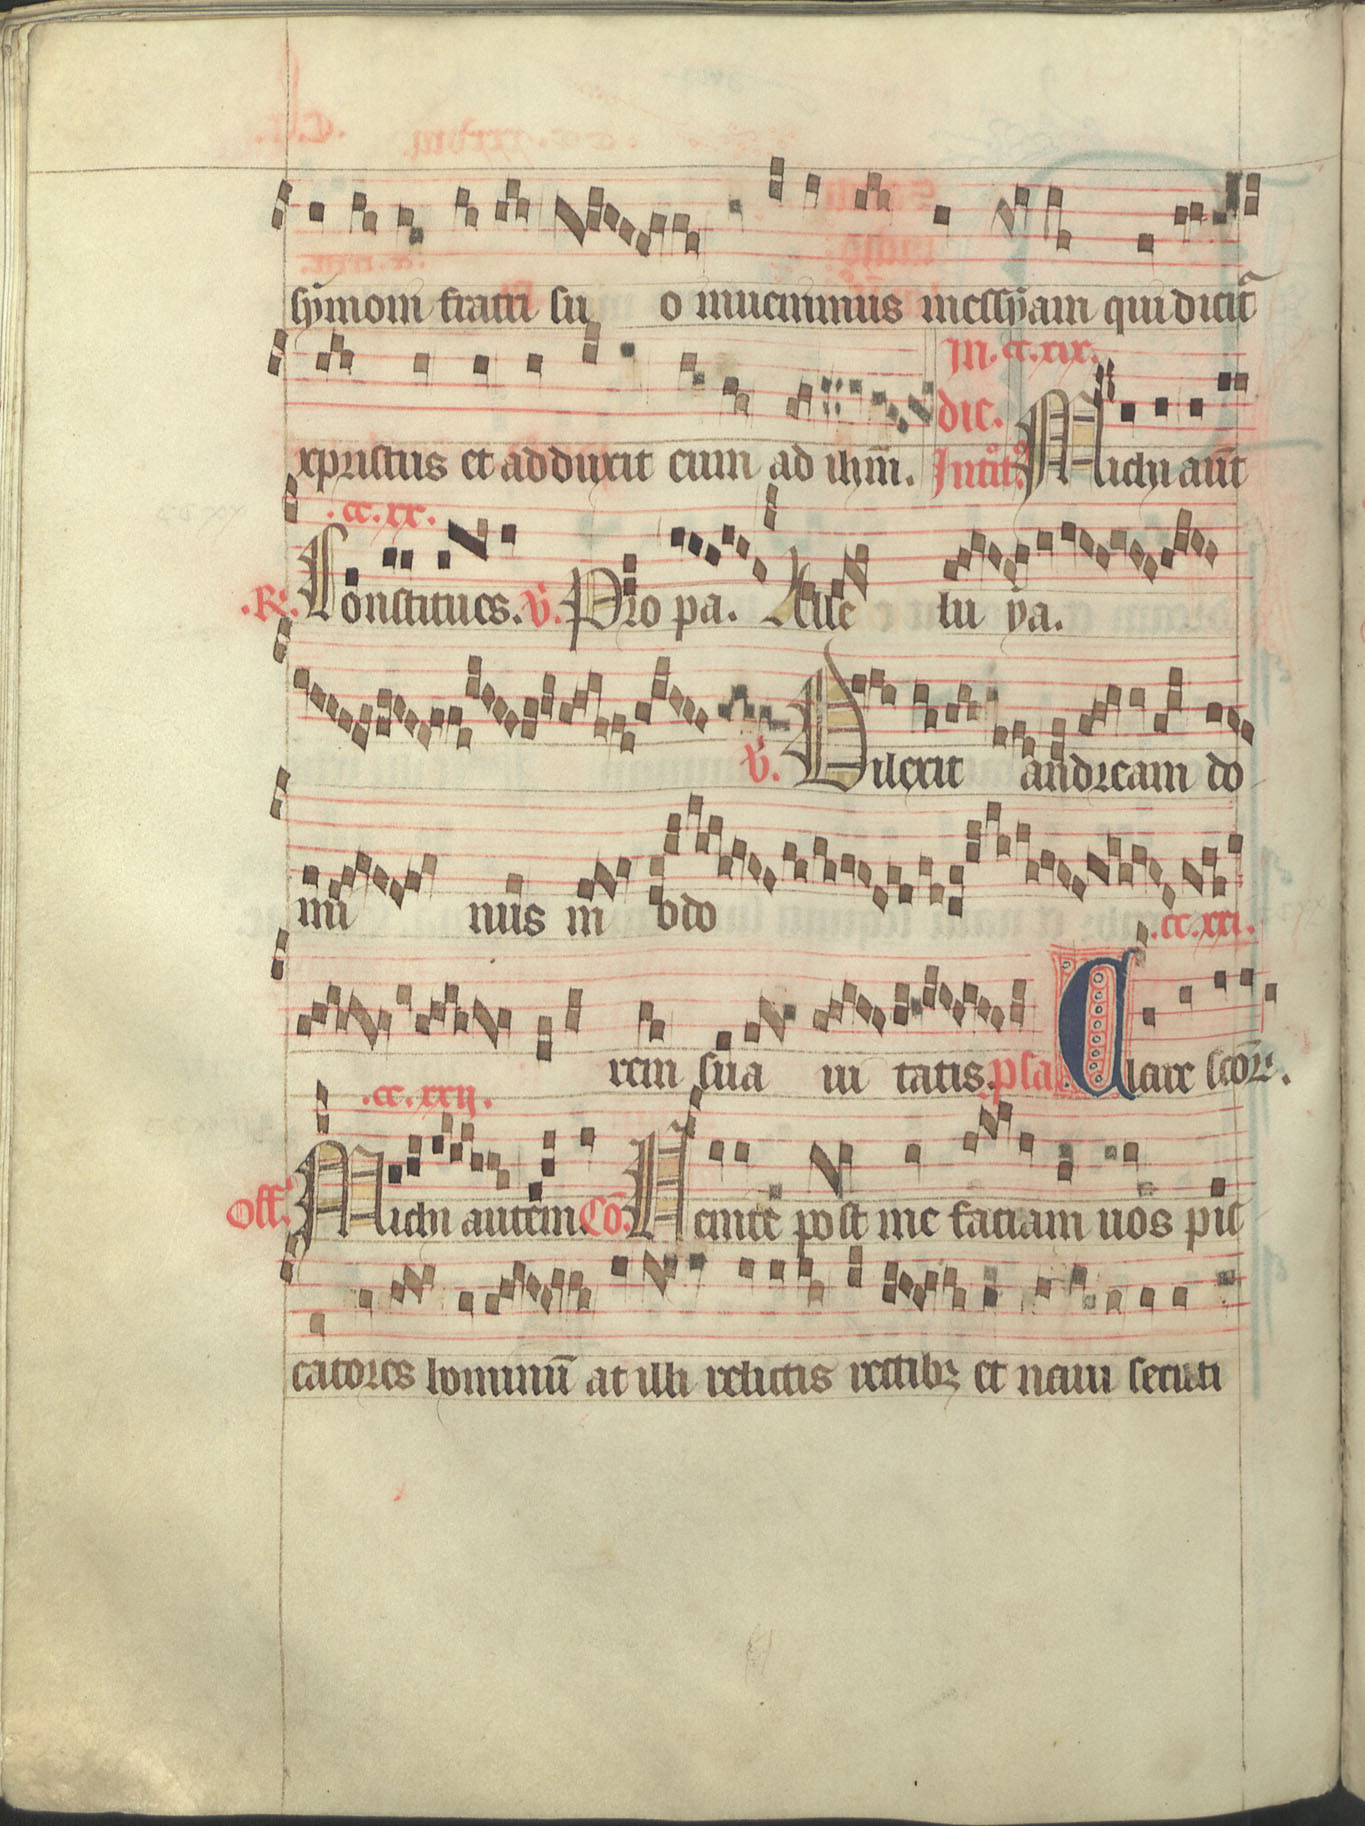 sẏmoni fratri su o inuenimus messẏam qui dicit᷑
In .cc.xix.
xpristus et adduxit eum ad ihm̄. dic. Introit᷒ Michi aut̄
.cc.xx.
.R. Constitues. v̄. Pro pa. Alle lu ẏa.
v̄. Dilexit andream do
mi nus in odo
.cc.xxi.
rem sua ui tatis. psa Uigilie
.cc.xxij.
Off. Michi autem Cō. Uenite post me faciam uos pis
catores hominū at illi relictis rectib₃ et naui secuti